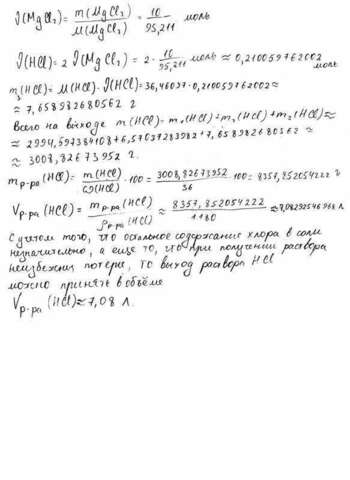 ν(MgCl₂) = m(MgCl₂)/M(MgCl₂) = 10/95,211 моль
ν(HCl) = 2 ν(MgCl₂) = 2 · 10/95,211 моль ≈ 0,210059762002 моль
m₃(HCl) = M(HCl) · ν(HCl) = 36,46094 · 0,210059762002 ≈
≈ 7,658982680562 г
Всего на выходе m(HCl) = m₁(HCl) + m₂(HCl) + m₃(HCl) ≈
≈ 2994,597384108 + 6,57037283982 + 7,658982680562 ≈
≈ 3008,82673952 г.
m р-ра (HCl) = m(HCl)/ω(HCl) · 100 = 3008,82673952/36 · 100 = 8357,852054222 г
V р-ра (HCl) = m р-ра (HCl)/ρ р-ра (HCl) ≈ 8357,852054222/1180 ≈ 7,08292546968 л
С учетом того, что остальное содержание хлора в соли
незначительно, а еще то, что при получении раствора
неизбежны потери, то выход раствора HCl
можно принять в объёме
V р-ра (HCl) ≈ 7,08 л.